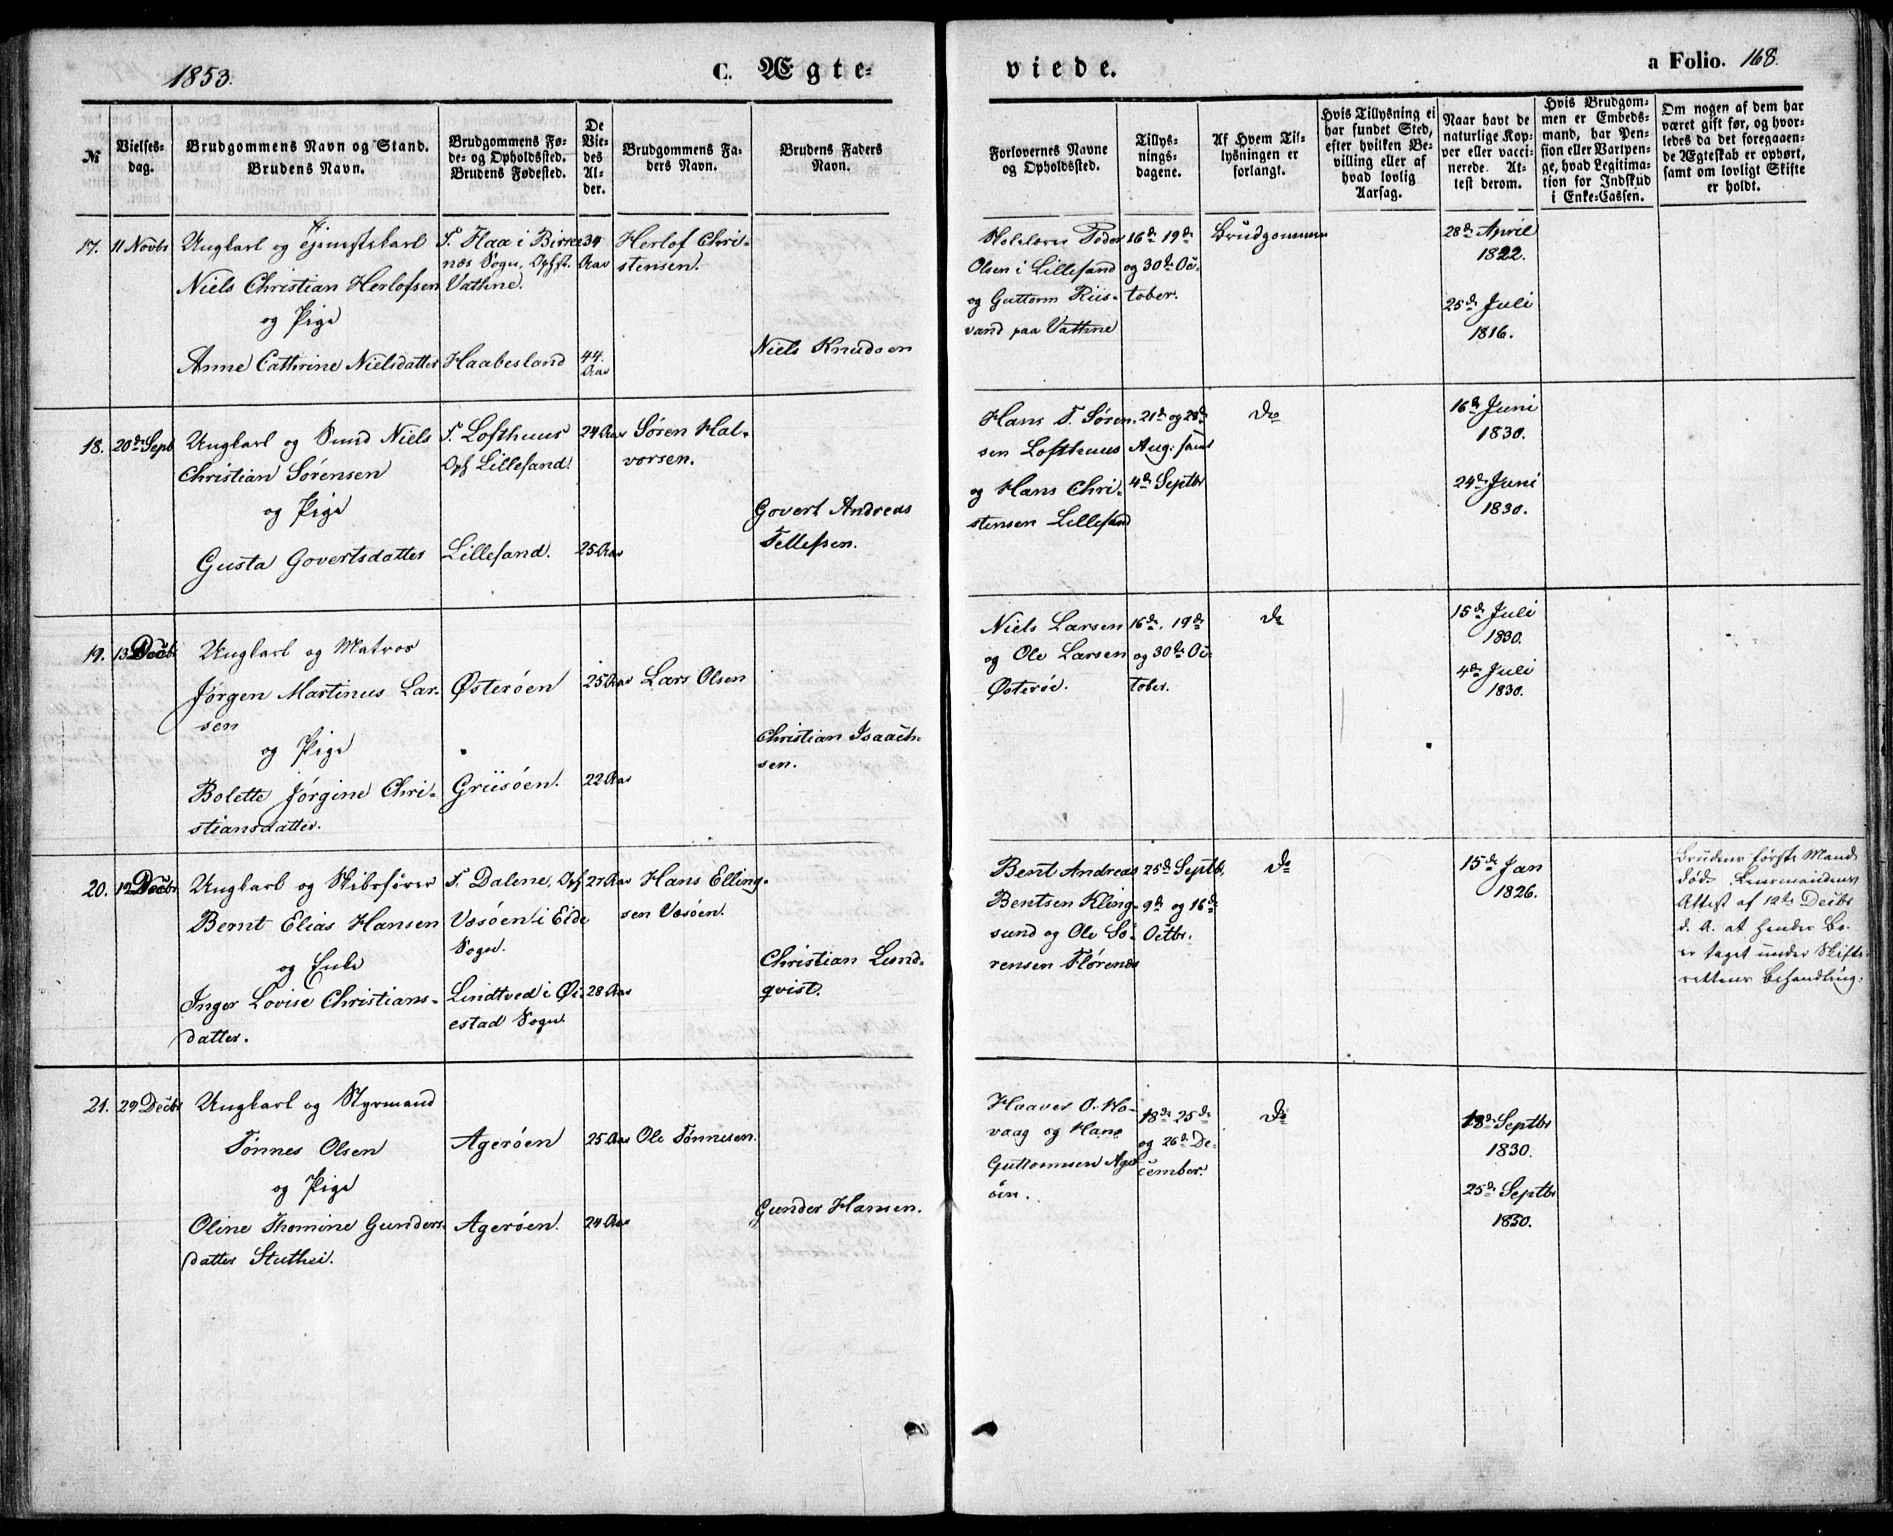 1853.
C. Ægte-
viede.
a Folio. 168.
№
Vielses-
dag.
Brudgommens Navn og Stand.
Brudens Navn.
Brudgommens Fø-
de- og Opholdssted.
Brudens Fødested.
De
Vie-
des
Al-
der.
Brudgommens Fa-
ders Navn.
Brudens Faders
Navn.
Forlovernes Navne
og Opholdssted.
Tillys-
nings-
dagene.
Af Hvem Til-
lysningen er
forlangt.
Hvis Tillysning ei
har fundet Sted,
efter hvilken Be-
villing eller af
hvad lovlig
Aarsag.
Naar havt de
naturlige Kop-
per eller vacci-
nerede. At-
test derom.
Hvis Brudgom-
men er Embeds-
mand, har Pen-
sion eller Vartpen-
ge, hvad Legitima-
tion for Indskud
i Enke-Cassen.
Om nogen af dem har
været gift før, og hvor-
ledes da det foregaaen-
de Ægteskab er ophørt,
samt om lovligt Skifte
er holdt.
17.
11 Novbr
Ungkarl og Tjenestekarl
Niels Christian Herlofsen
og Pige
Anne Cathrine Nielsdatter
F. Haa i Birke-
næs Sogn, Ophst.
Vathne.
Haabesland
34
Aar
44.
Aar
Herlof Chri-
stensen.
Niels Knudsen
Skolelærer Peder
Olsen i Lillesand
og Guttorm Riis-
vand paa Vathne
16de 19de
og 30te Oc-
tober.
Brudgommen
28de April
1822.
25de Juli
1816.
18.
20de Sept
Ungkarl og Smed Niels
Christian Sørensen
og Pige
Gusta Govertsdatter
F. Lofthuus
Oph Lillesand.
Lillesand.
24 Aar
25 Aar
Søren Hal-
vorsen.
Govert Andreas
Tellefsen.
Hans F. Søren-
sen Lofthuus
og Hans Chri-
stensen Lillesand
21de og 28de
Aug: samt
4de Septbr
Do
16de Juni
1830.
24de Juni
1830.
19.
13 Decbr
Ungkarl og Matros
Jørgen Martinus Lar-
sen
og Pige
Bolette Jørgine Chri-
stiansdatter.
Østerøen
Griisøen.
25 Aar
22 Aar
Lars Olsen
Christian Isaach-
sen.
Niels Larsen
og Ole Larsen
Østerøe.
16de, 19de
og 30te Oc-
tober.
Do
15de Juli
1830.
4de Juli
1830.
20.
12 Decbr
Ungkarl og Skibsfører
Bernt Elias Hansen
og Enke
Inger Lovise Christians-
datter.
F. Dalene, Oph
Vesøen i Eide
Sogn.
Lindtved i Øi-
estad Sogn
27 Aar
28 Aar
Hans Elling-
sen Vesøen.
Christian Lund-
qvist.
Bent Andreas
Bentsen Kling-
sund og Ole Sø-
rensen Flørenæs
25de Septb,
9de og 16de
Octbr.
Do
15de Jan
1826.
Brudens første Mand
død. Lensmandens
Attest af 12te Decbr
d. A. at hendes Bo
er taget under Skifte-
rettens Behandling.
21.
29 Decbr
Ungkarl og Styrmand
Tønnes Olsen
og Pige
Oline Thomine Gunders-
datter Stuthei.
Agerøen
Agerøen.
25 Aar
24 Aar
Ole Tønnesen.
Gunder Hansen.
Haaver O. Ho-
vaag og Hans
Guttormsen Ager-
øen.
18de 25de
og 26de De-
cember.
Do
18de Septbr
1830.
25de Septbr
1830.